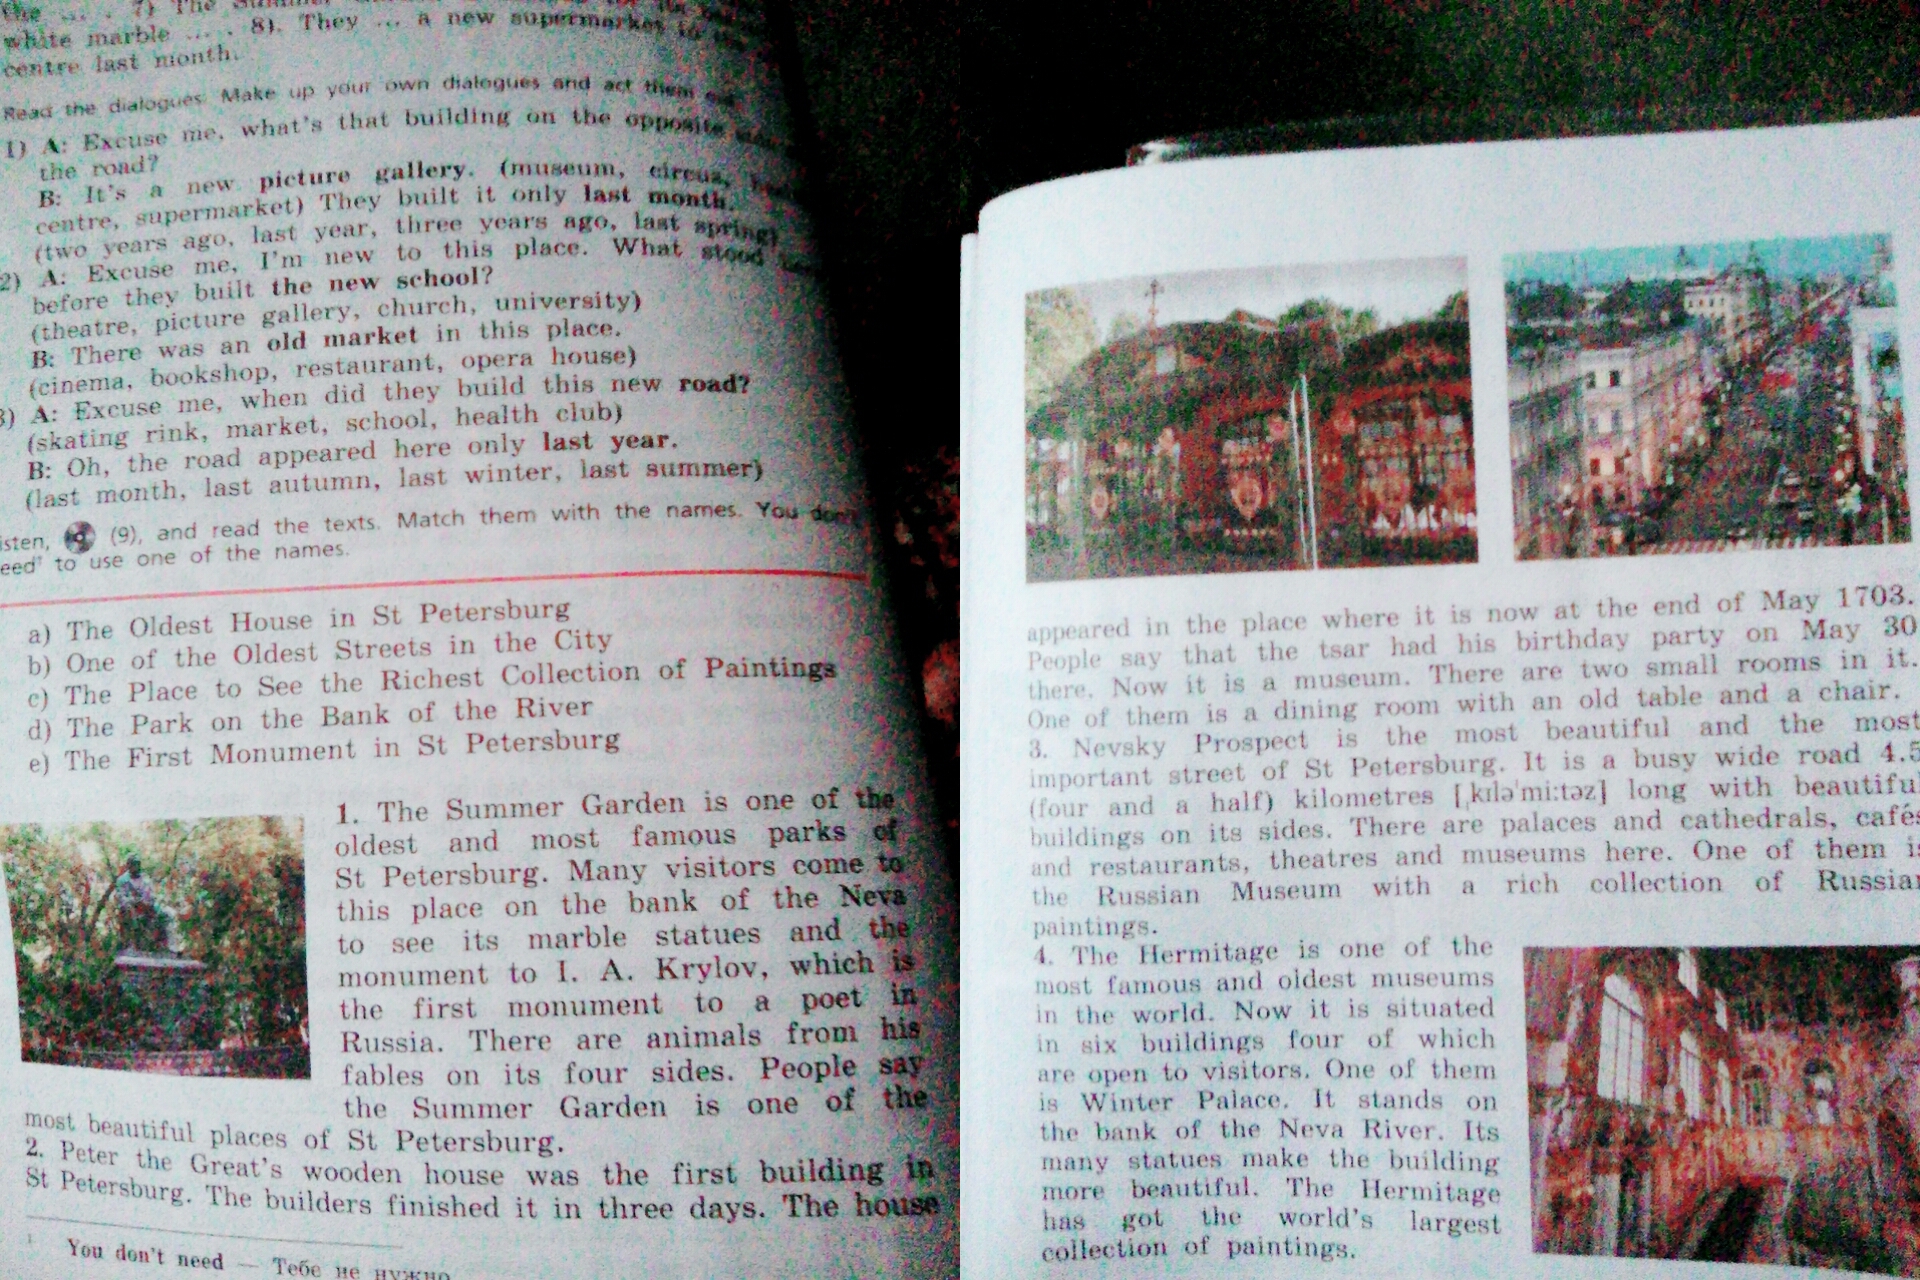 the ... . 7) The Summer Garden
white marble ... . 8). They ... a new supermarket in the
centre last month.
Read the dialogues. Make up your own dialogues and act them out.
1) A: Excuse me, what's that building on the opposite
the road?
B: It's a new picture gallery. (museum, circus,
centre, supermarket) They built it only last month.
(two years ago, last year, three years ago, last spring)
2) A: Excuse me, I'm new to this place. What stood
before they built the new school?
(theatre, picture gallery, church, university)
B: There was an old market in this place.
(cinema, bookshop, restaurant, opera house)
3) A: Excuse me, when did they build this new road?
(skating rink, market, school, health club)
B: Oh, the road appeared here only last year.
(last month, last autumn, last winter, last summer)
isten, (9), and read the texts. Match them with the names. You don't
eed¹ to use one of the names.
a) The Oldest House in St Petersburg
b) One of the Oldest Streets in the City
c) The Place to See the Richest Collection of Paintings
d) The Park on the Bank of the River
e) The First Monument in St Petersburg
1. The Summer Garden is one of the
oldest and most famous parks of
St Petersburg. Many visitors come to
this place on the bank of the Neva
to see its marble statues and the
monument to I. A. Krylov, which is
the first monument to a poet in
Russia. There are animals from his
fables on its four sides. People say
the Summer Garden is one of the
most beautiful places of St Petersburg.
2. Peter the Great's wooden house was the first building in
St Petersburg. The builders finished it in three days. The house
¹ You don't need — Тебе не нужно
appeared in the place where it is now at the end of May 1703.
People say that the tsar had his birthday party on May 30
there. Now it is a museum. There are two small rooms in it.
One of them is a dining room with an old table and a chair.
3. Nevsky Prospect is the most beautiful and the most
important street of St Petersburg. It is a busy wide road 4.5
(four and a half) kilometres [ˌkɪləˈmiːtəz] long with beautiful
buildings on its sides. There are palaces and cathedrals, cafés
and restaurants, theatres and museums here. One of them is
the Russian Museum with a rich collection of Russian
paintings.
4. The Hermitage is one of the
most famous and oldest museums
in the world. Now it is situated
in six buildings four of which
are open to visitors. One of them
is Winter Palace. It stands on
the bank of the Neva River. Its
many statues make the building
more beautiful. The Hermitage
has got the world's largest
collection of paintings.